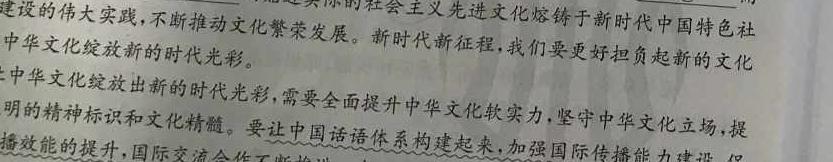 的社会主义先进文化熔铸于新时代中国特色社
建设的伟大实践,不断推动文化繁荣发展。新时代新征程,我们要更好担负起新的文化
中华文化绽放新的时代光彩。
中华文化绽放出新的时代光彩,需要全面提升中华文化软实力,坚守中华文化立场,提
明的精神标识和文化精髓。要让中国话语体系构建起来,加强国际传播能力建设
播效能的提升,国际交流合作不断